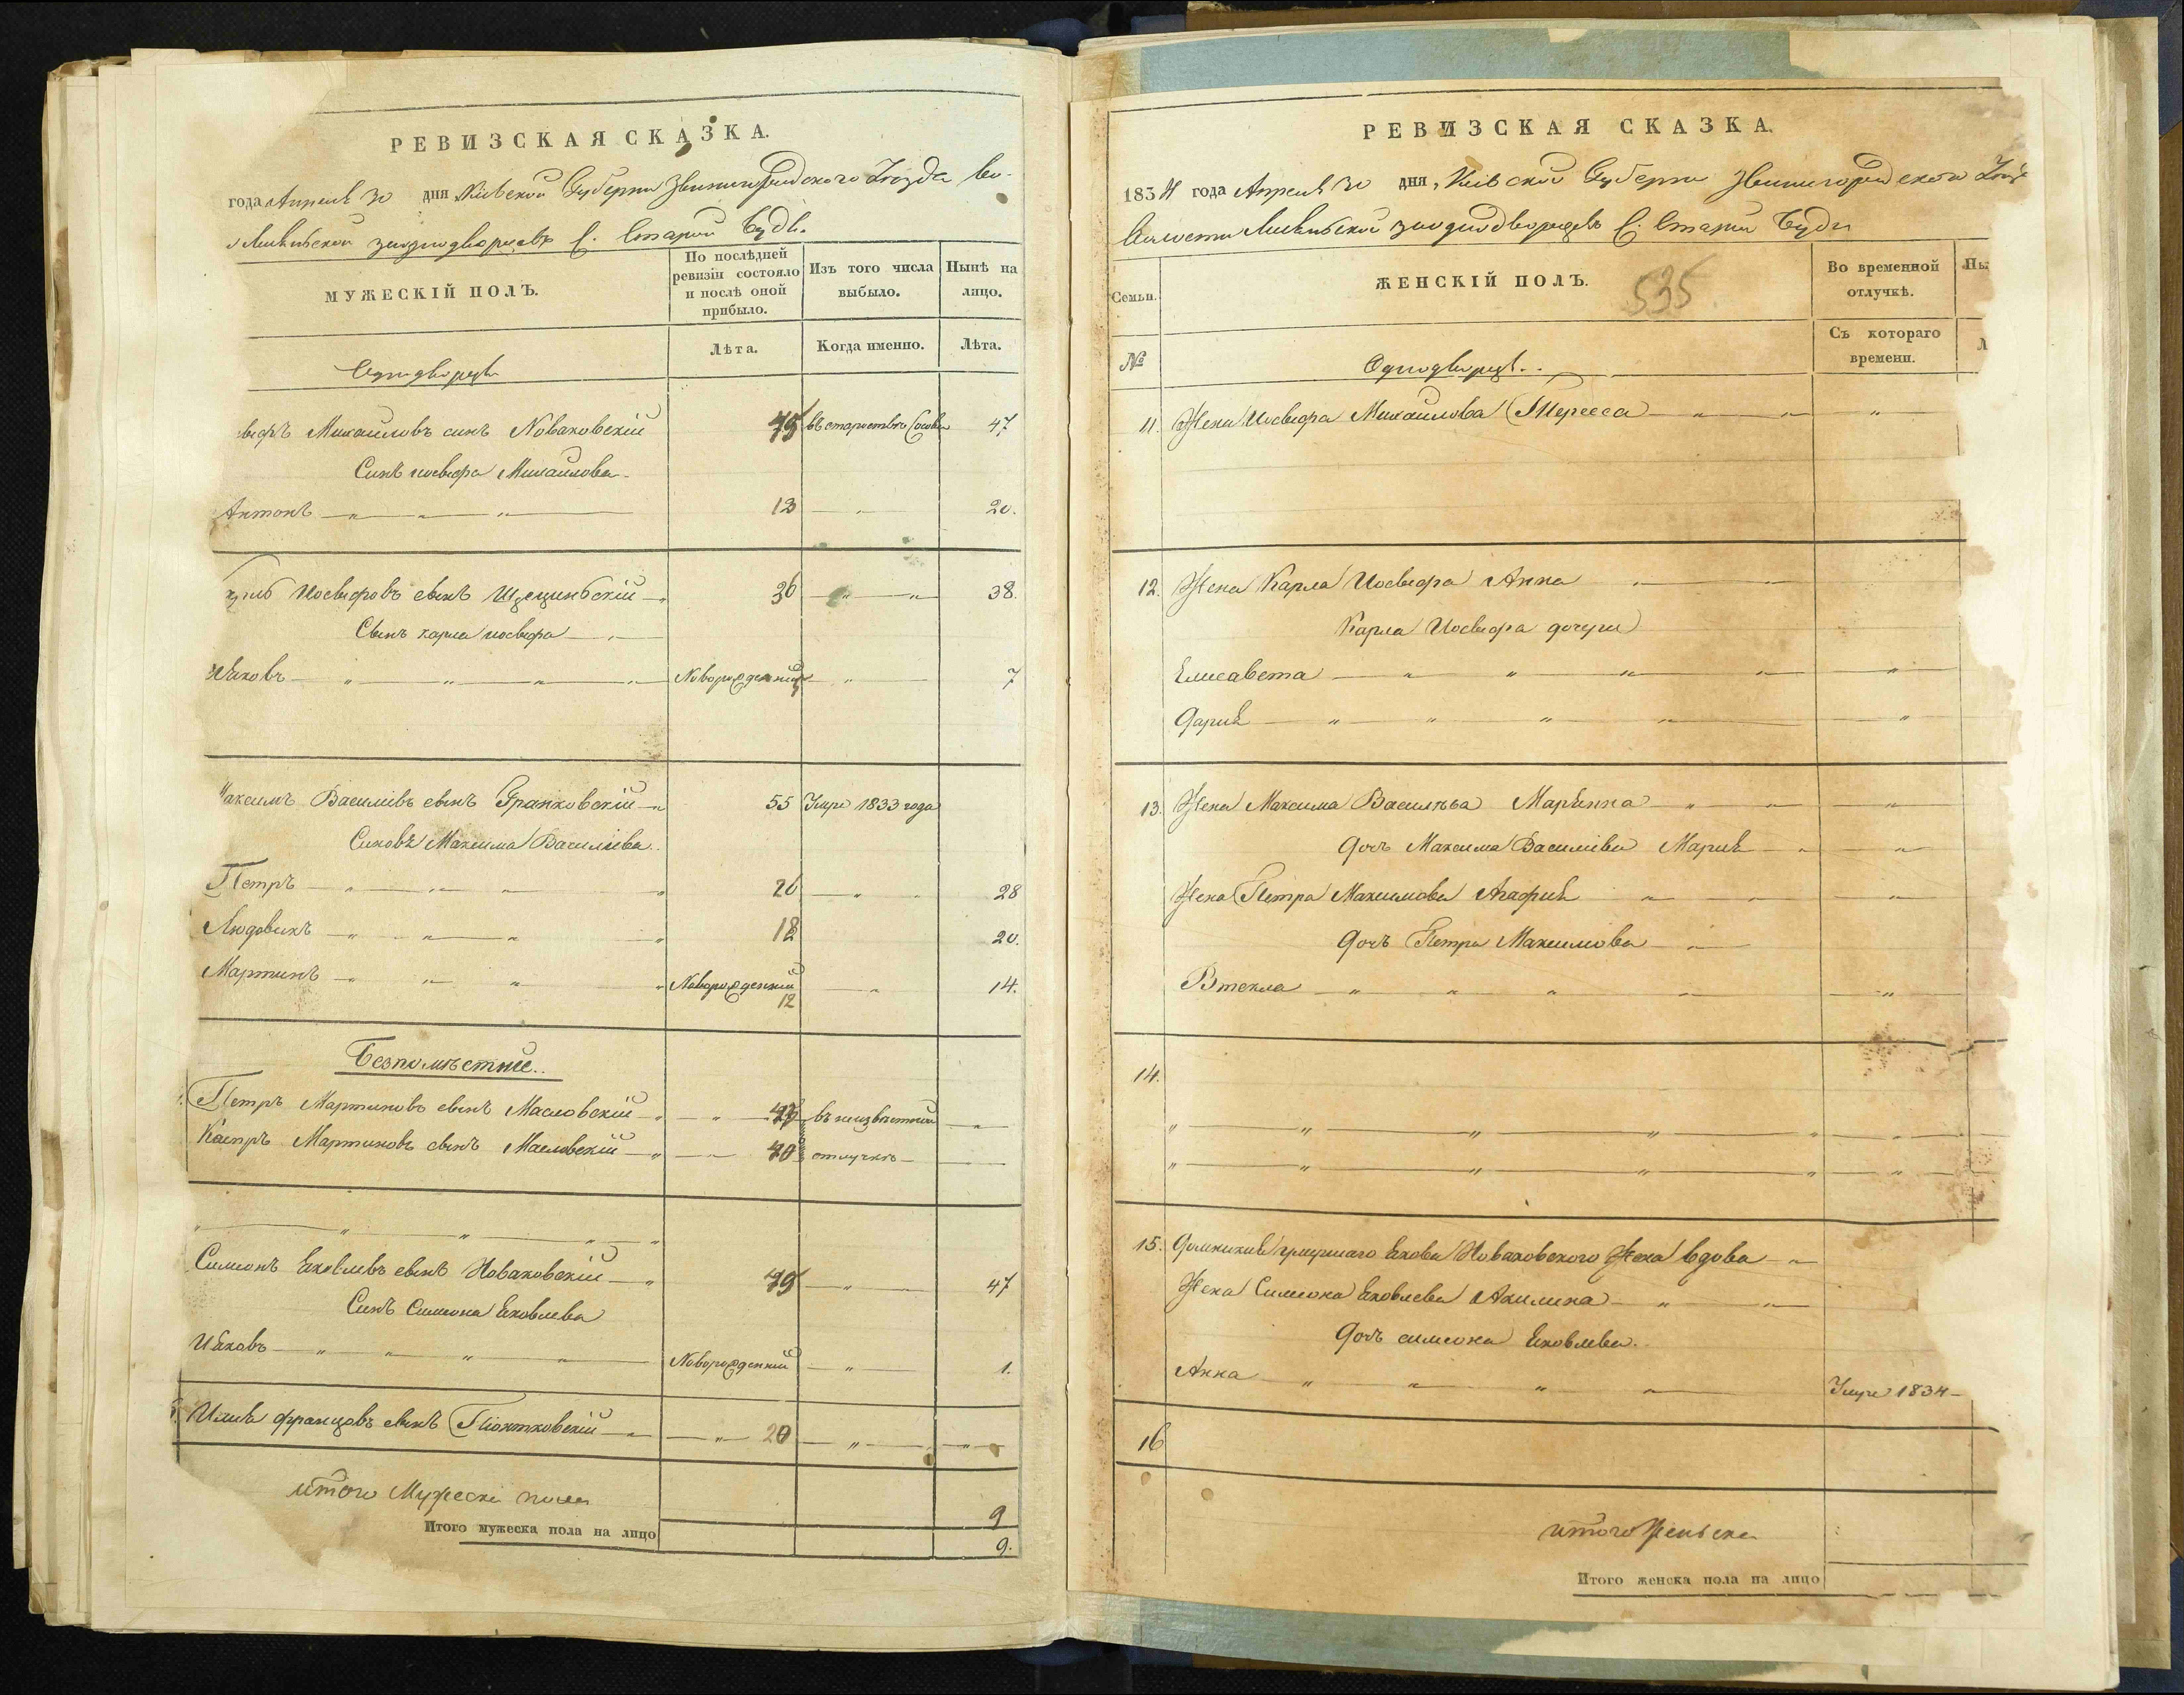 РЕВИЗСКАЯ СКАЗКА.
года Апреля 30 дня Киевской Губерни Звинигородского Уезда Во-
заоднодворцовъ С. Старой Буды.
МУЖЕСКІЙ ПОЛЪ.
По послѣдней ревизіи состояло и послѣ оной прибыло.
Изъ того числа выбыло.
Нынѣ на лицо.
Лѣта.
Когда именно.
Лѣта.
Однодворцы
Михаиловъ синъ Новаковскій 45 въ староство 47
Синъ иосифа Михаилова
Антонъ 13 20.
Иосифовъ сынъ Щецинскій 36 38.
Сынъ карла иосифа
Яковъ Новорожденний 7
Максимъ Василіевъ сынъ Гранковскій 55 Умре 1833 года
Синовя Максима Василіева.
Петръ 20 28
Людовикъ 12 20.
Мартинъ Новорожденний 14.
12
Безпомѣстніе..
Петръ Мартиновъ сынъ Масловскій въ неизвѣстной
Каспръ Мартиновъ сынъ Масловскій 40 отлучкѣ
Симионъ Яковлевъ сынъ Новаковскій 47
Синъ Симиона Яковлева
Иаковъ Новорожденній 1.
Илия францовъ сынъ 20
итого Мужеска пола 9
Итого мужеска пола на лицо 9.
РЕВИЗСКАЯ СКАЗКА.
1834 года Апреля 30 дня, Киевской Губерни Звинигородского
Волости заоднодворцовъ С. Старой Буды
Семьи.
ЖЕНСКІЙ ПОЛЪ.
535
Во временной отлучкѣ.
Ны
№
Однодворцы.
Съ котораго времени.
Л
11. Жена Иосифа Михаилова Тересса
12. Жена Карла Иосифа Анна
Карла Иосифа дочери
Елисавета
Дария
13. Жена Максима Василева Марянна
Дочъ Максима Василіева Мария
Жена Петра Максимова Агафия
Дочъ Петра Максимова
Втекла
14.
15. Доминикия умершаго Якова Новаковского Жена вдова
Жена Симиона Яковлева Акилина
Дочъ симиона Яковлева.
Анна Умре 1834
16
итого Женска
Итого женска пола на лицо